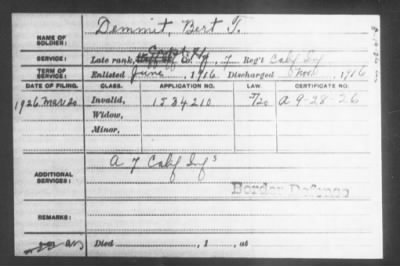 NAME OF SOLDIER: Demmit, Bert T.
SERVICE: Late rank, Co. 7, 7 Reg't Calif Inf
TERM OF SERVICE: Enlisted June, 1916 Discharged Nov, 1916
DATE OF FILING. CLASS. APPLICATION NO. LAW. CERTIFICATE NO.
1926 Mar 20 Invalid, 1534210 A 9-28-26
Widow,
Minor,
ADDITIONAL SERVICES: A 7 Calif Inf
Border Defense
REMARKS:
Died, 1, at